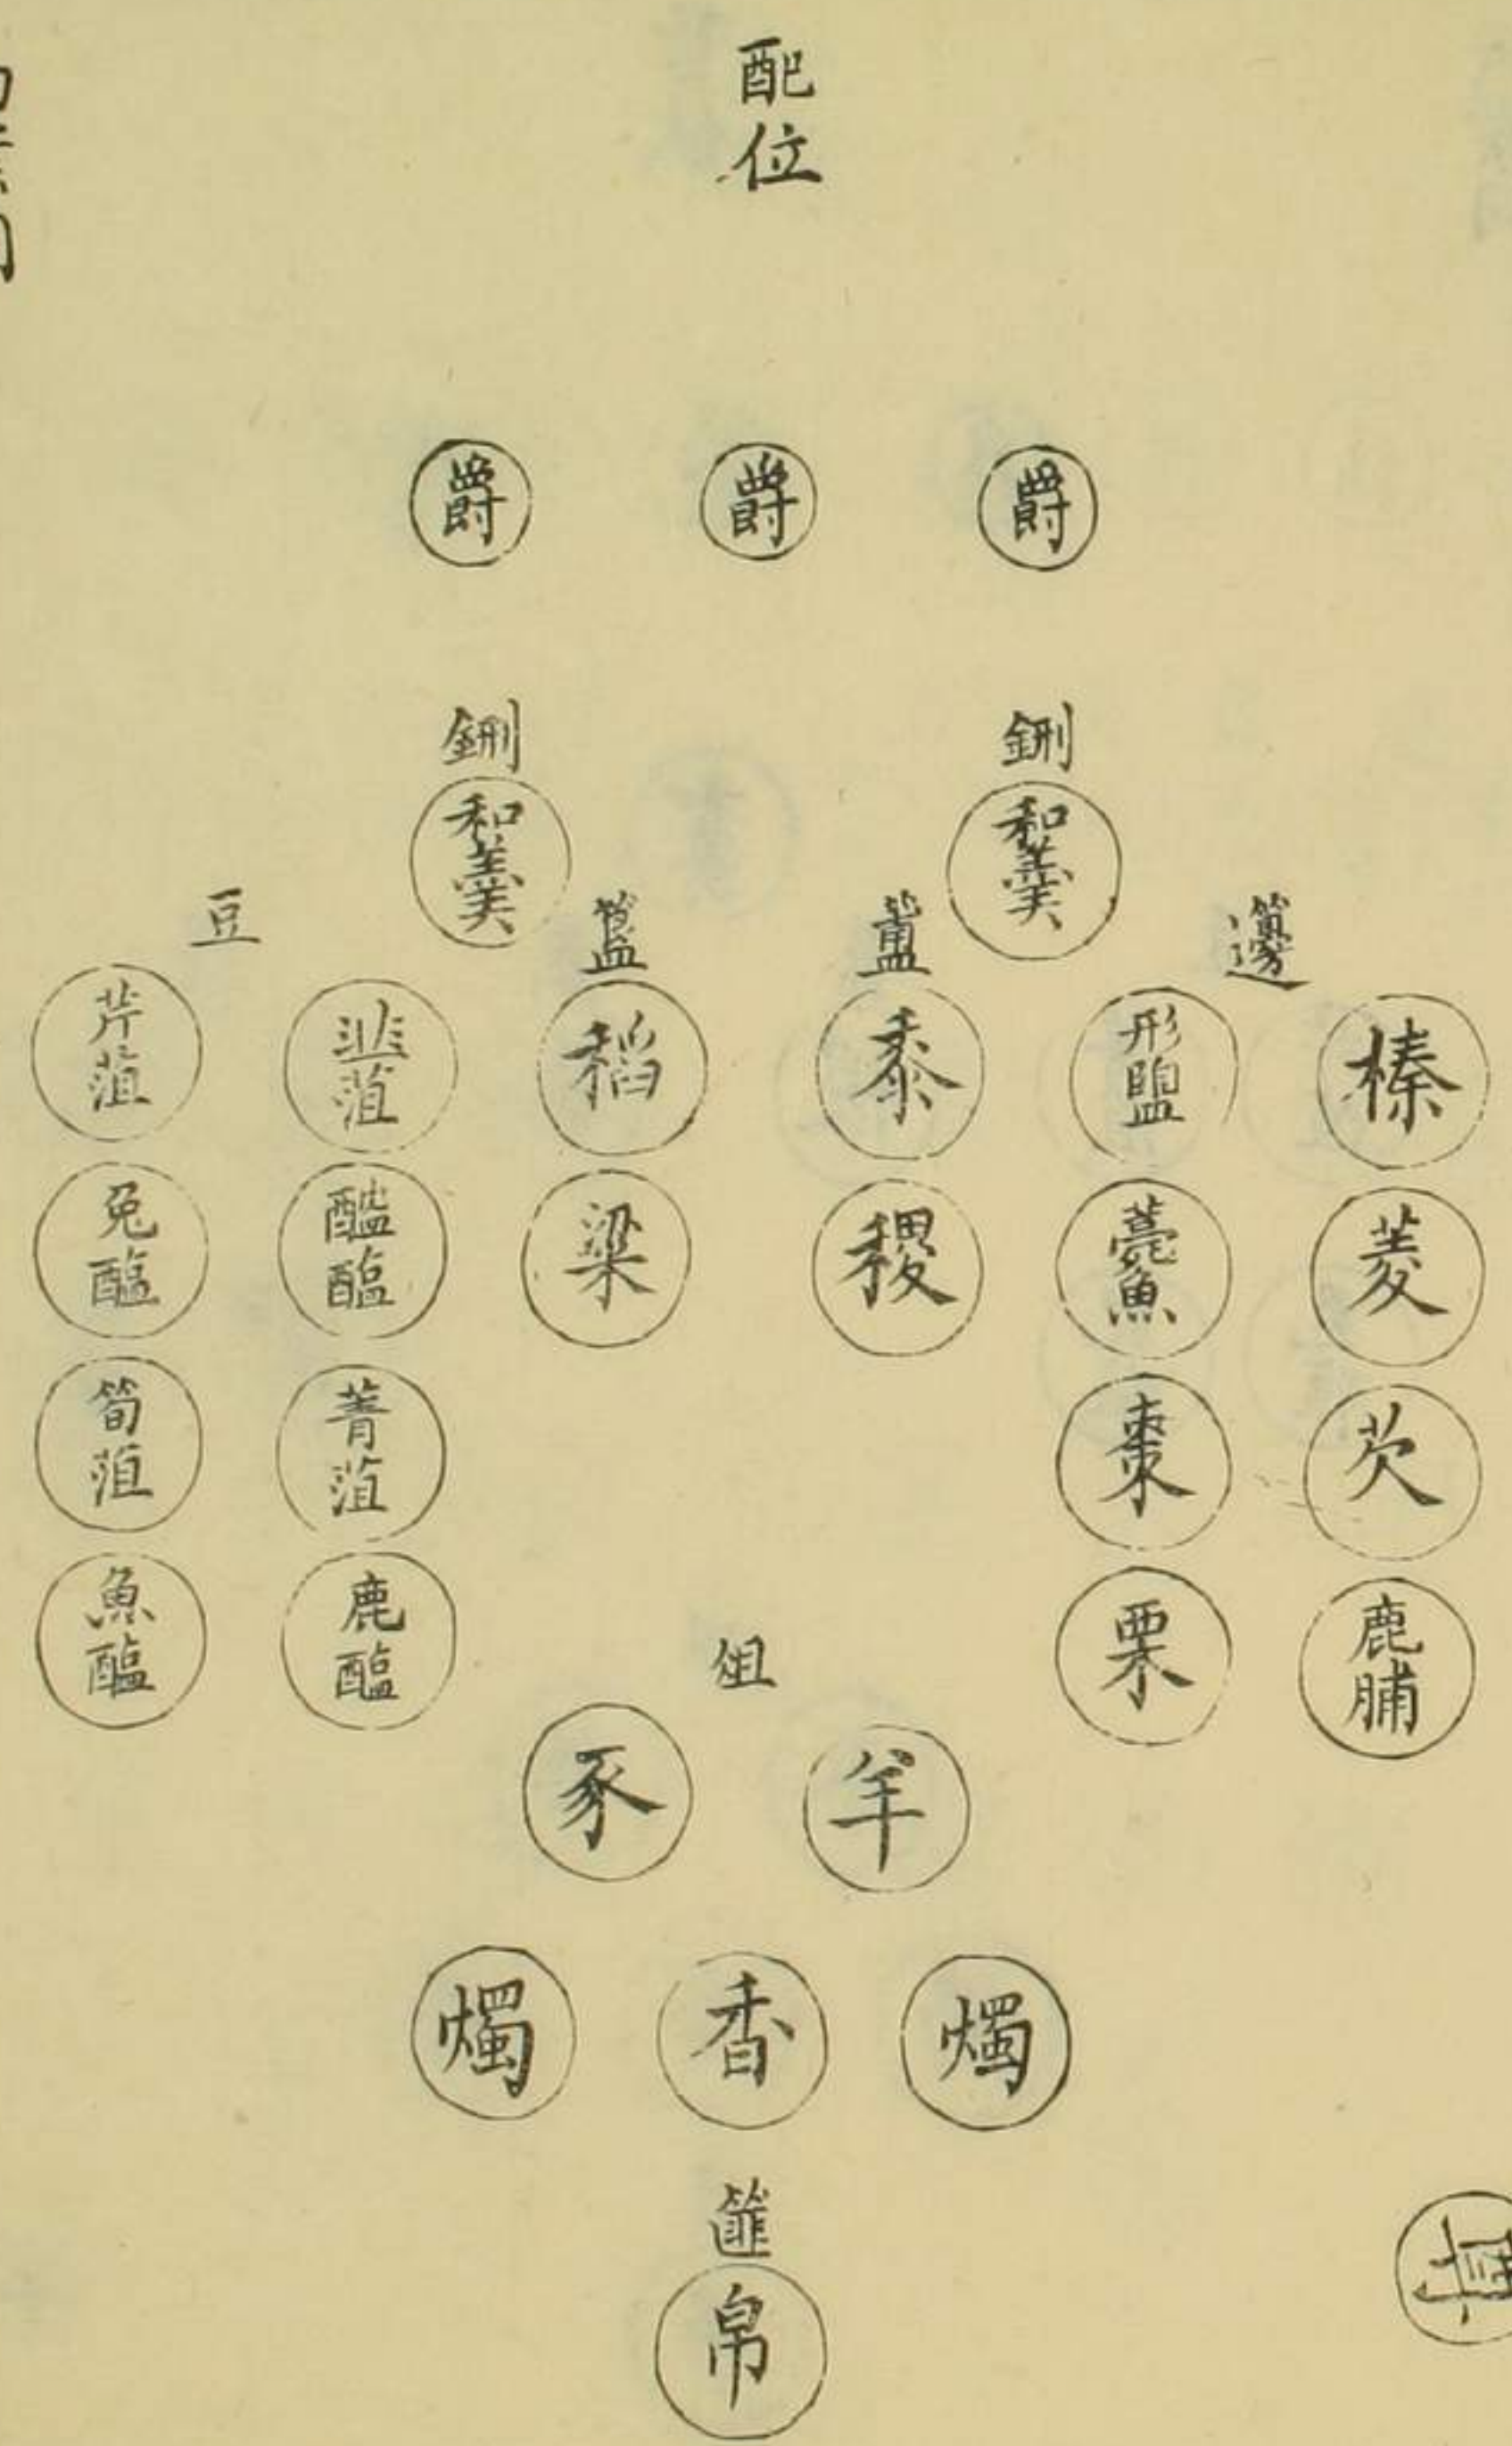 配位
爵
爵
爵
鉶
和羹
鉶
和羹
籩
榛
菱
芡
鹿脯
形鹽
薧魚
棗
栗
簠
黍
稷
簋
稻
梁
豆
韭菹
醓醢
菁菹
鹿醢
芹菹
兔醢
筍菹
魚醢
俎
羊
豕
燭
香
燭
篚
帛